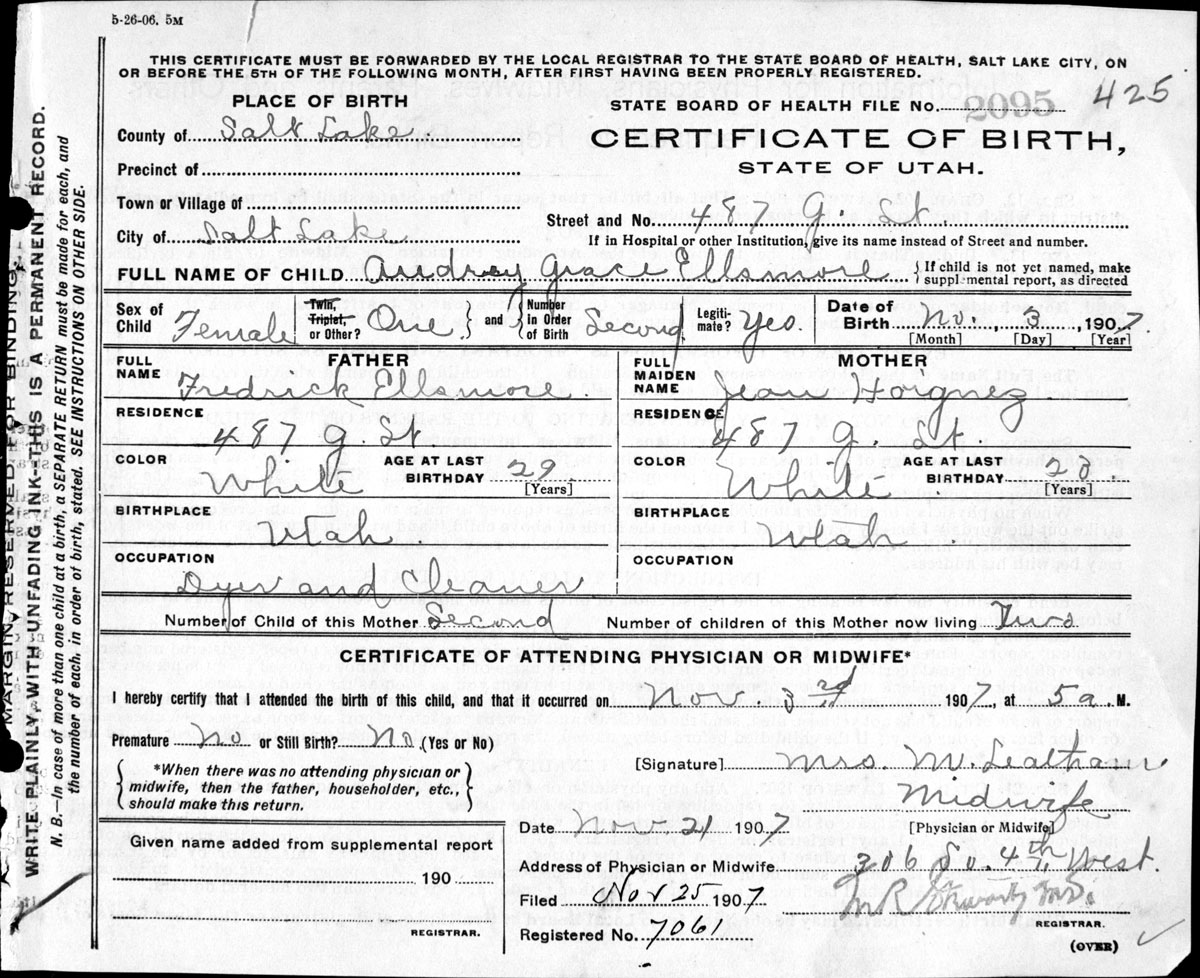 5-26-06. 5M
THIS CERTIFICATE MUST BE FORWARDED BY THE LOCAL REGISTRAR TO THE STATE BOARD OF HEALTH, SALT LAKE CITY, ON
OR BEFORE THE 5TH OF THE FOLLOWING MONTH, AFTER FIRST HAVING BEEN PROPERLY REGISTERED.
PLACE OF BIRTH
STATE BOARD OF HEALTH FILE No. 2095 425
County of Salt Lake
CERTIFICATE OF BIRTH,
STATE OF UTAH.
Precinct of
Town or Village of
Street and No. 487 G. St.
City of Salt Lake
If in Hospital or other Institution, give its name instead of Street and number.
FULL NAME OF CHILD Audrey Grace Ellsmore { If child is not yet named, make
supplemental report, as directed
Sex of Child Female Twin, Triplet, or Other? One } and { Number in Order of Birth Second Legiti-mate? Yes. Date of Birth No. 3, 1907.
[Month] [Day] [Year]
FATHER
FULL NAME Fredrick Ellsmore.
RESIDENCE 487 G. St
COLOR White AGE AT LAST BIRTHDAY 29 [Years]
BIRTHPLACE Utah.
OCCUPATION Dyer and Cleaner
MOTHER
FULL MAIDEN NAME Jean
RESIDENCE 487 G. St.
COLOR White AGE AT LAST BIRTHDAY 23. [Years]
BIRTHPLACE Utah.
OCCUPATION
Number of Child of this Mother Second Number of children of this Mother now living Two
CERTIFICATE OF ATTENDING PHYSICIAN OR MIDWIFE*
I hereby certify that I attended the birth of this child, and that it occurred on Nov. 3rd 1907, at 5 a. M.
Premature No or Still Birth? No (Yes or No)
*When there was no attending physician or
midwife, then the father, householder, etc.,
should make this return.
[Signature] Mrs. M. Leatham
Midwife
[Physician or Midwife]
Date Nov. 21 1907
Address of Physician or Midwife 306 So. 4th West.
Filed Nov 25 1907
M R Stewart M.D.
REGISTRAR.
Registered No. 7061
(OVER)
Given name added from supplemental report
190
REGISTRAR.
MARGIN RESERVED FOR BINDING.
WRITE PLAINLY WITH UNFADING INK—THIS IS A PERMANENT RECORD.
N. B.—In case of more than one child at a birth, a SEPARATE RETURN must be made for each, and
the number of each, in order of birth, stated. SEE INSTRUCTIONS ON OTHER SIDE.